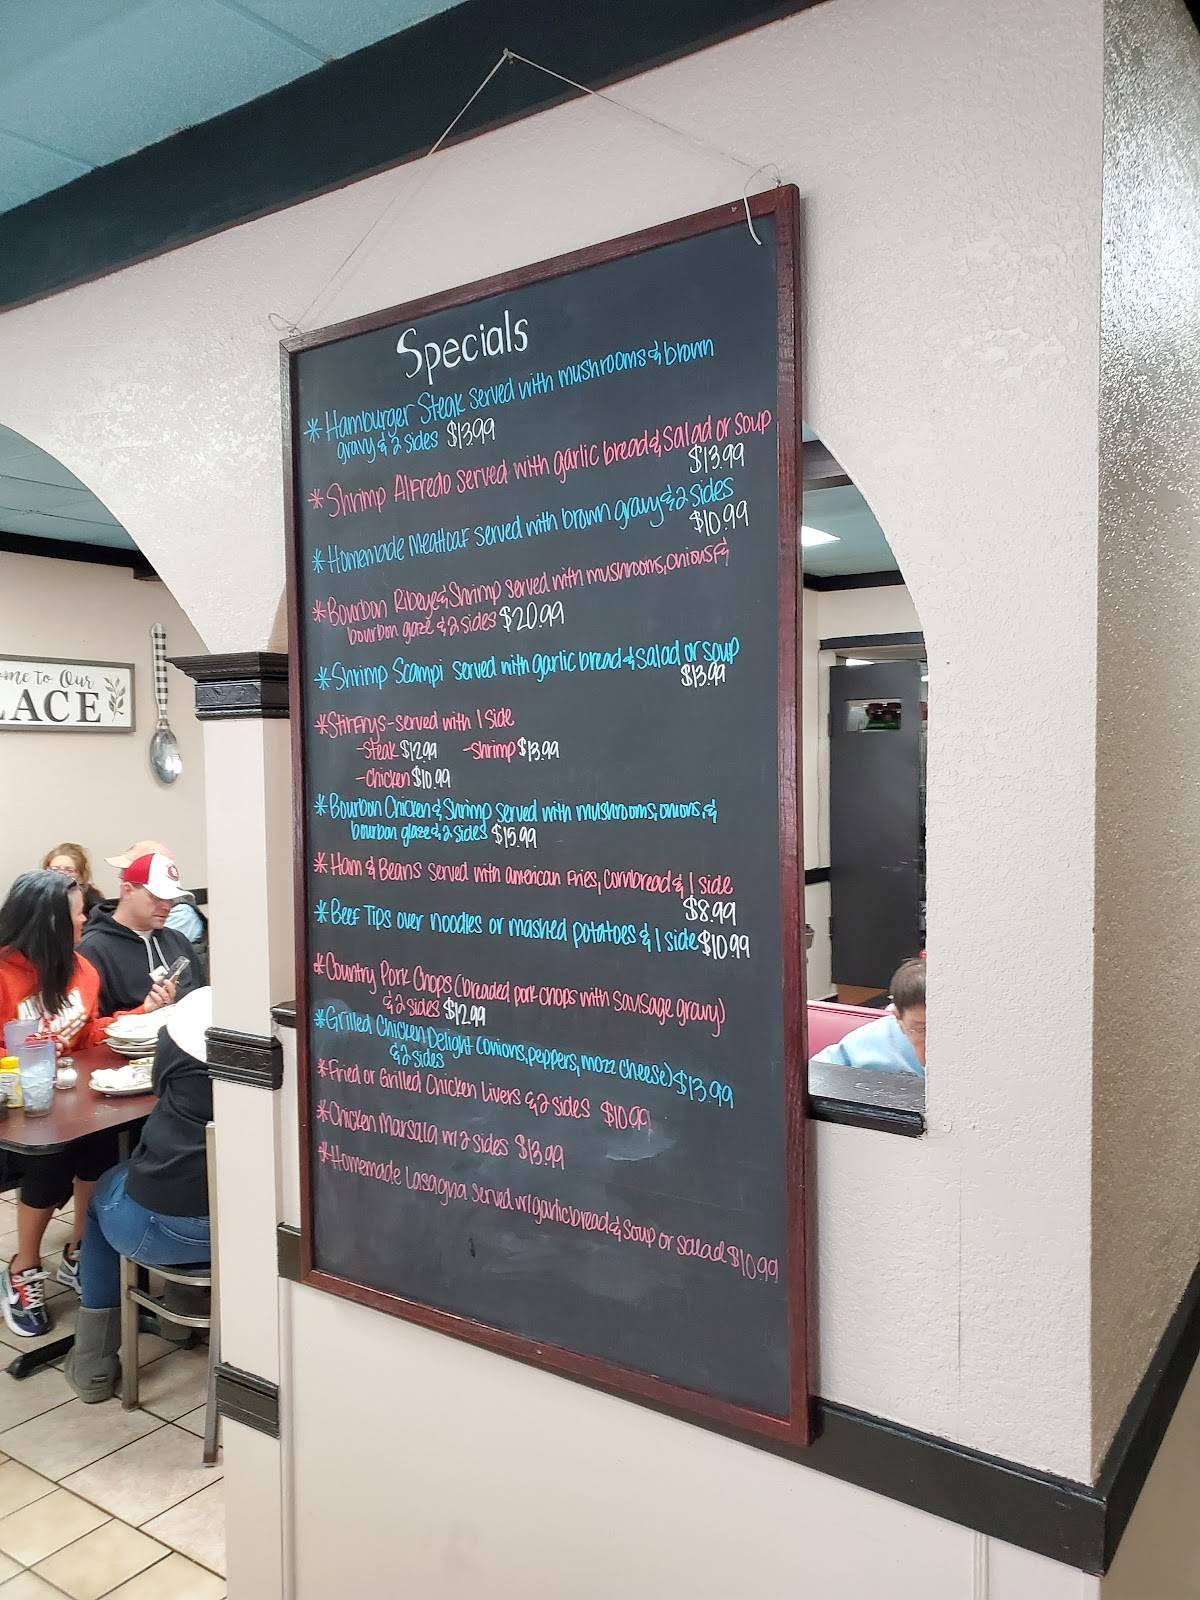 Specials
* Hamburger Steak served with mushrooms & brown
gravy & 2 sides $13.99
* Shrimp Alfredo served with garlic bread & Salad or Soup
$13.99
* Homemade Meatloaf served with brown gravy & 2 sides
$10.99
* Bourbon Ribeye & Shrimp served with mushrooms, onions &
bourbon gaze & 2 sides $20.99
* Shrimp Scampi served with garlic bread & salad or soup
$13.99
* Stirfrys - served with 1 side
- Steak $12.99 - Shrimp $13.99
- Chicken $10.99
* Bourbon Chicken & Shrimp served with mushrooms, onions, &
bourbon glaze & 2 sides $15.99
* Ham & Beans served with american Fries, cornbread & 1 side
$8.99
* Beef Tips over noodles or mashed potatoes & 1 side $10.99
* Country Pork Chops (breaded pork chops with sausage gravy)
& 2 sides $12.99
* Grilled Chicken Delight (onions, peppers, mozz cheese) $13.99
& 2 sides
* Fried or Grilled Chicken Livers & 2 sides $10.99
* Chicken Marsala w/ 2 sides $13.99
* Homemade Lasagna served w/ garlic bread & Soup or salad $10.99
me to Our
LACE